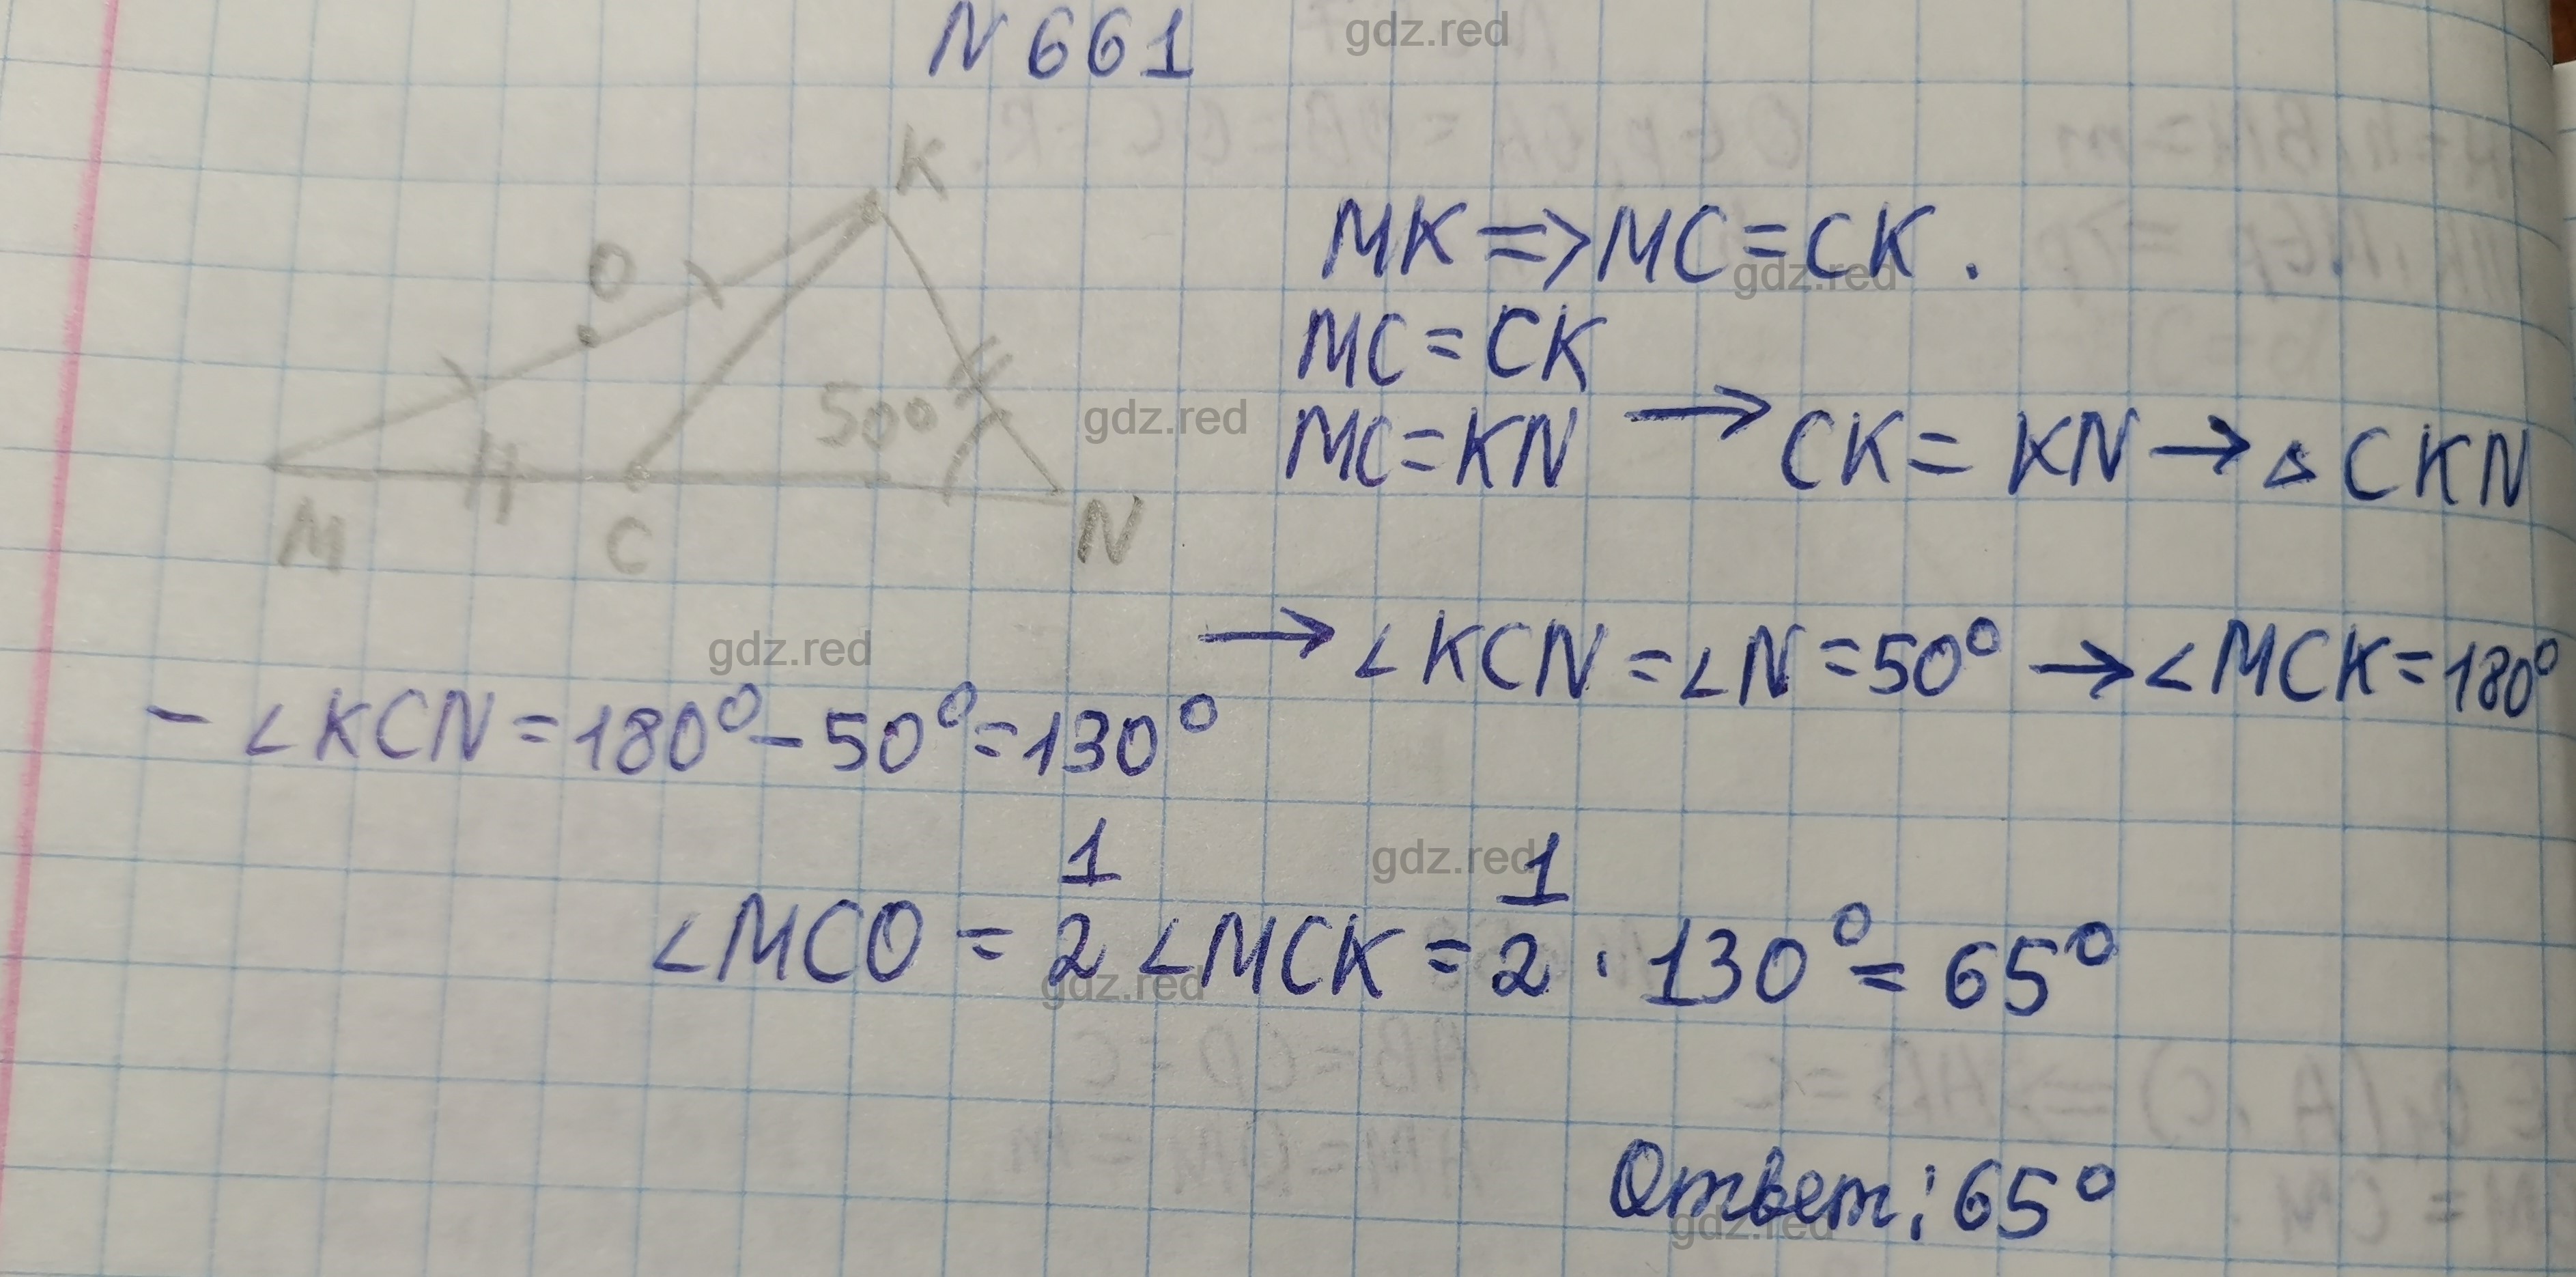 N 661
gdz.red
K
O
50°
M
C
N
MK => MC = CK.
gdz.red
MC = CK
MC = KN → CK = KN → △ CKN
gdz.red
→ ∠KCN = ∠N = 50° → ∠MCK = 180°
gdz.red
- ∠KCN = 180° - 50° = 130°
∠MCO = 1/2 ∠MCK = 1/2 · 130° = 65°
gdz.red
gdz.red
Ответ: 65°
gdz.red